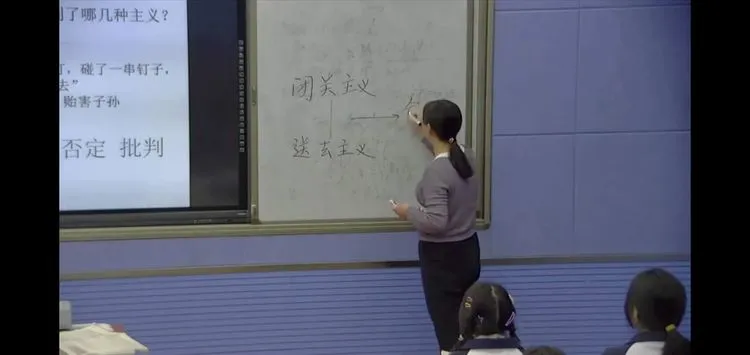 了哪几种主义？
，碰了一串钉子，
去”
贻害子孙
否定 批判
闭关主义
送去主义